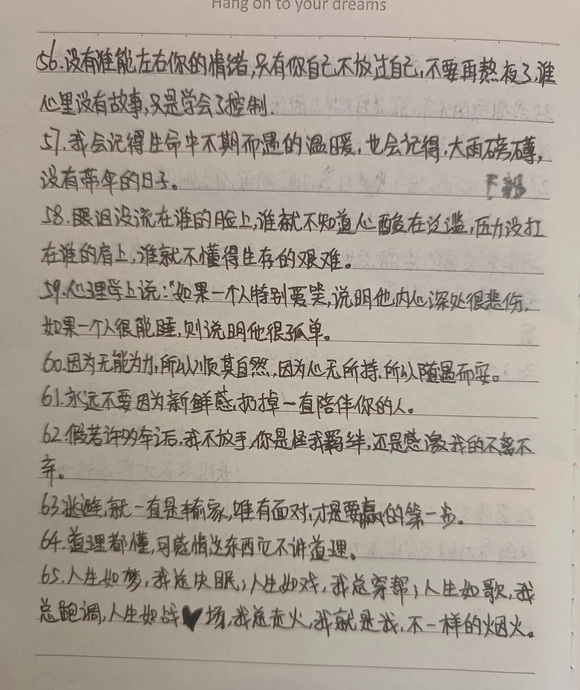 Hang on to your dreams
56.没有谁能左右你的情绪,只有你自己不放过自己,不要再熬夜了,谁
心里没有故事,只是学会了控制.
57.我会记得生命中不期而遇的温暖,也会记得,大雨磅礴,
没有带伞的日子。
58.眼泪没流在谁的脸上,谁就不知道心酸在泛滥,压力没扛
在谁的肩上,谁就不懂得生存的艰难。
59.心理学上说:"如果一个人特别爱笑,说明他内心深处很悲伤,
如果一个人很能睡,则说明他很孤单。
60.因为无能为力,所以顺其自然,因为心无所持,所以随遇而安。
61.永远不要因为新鲜感,扔掉一直陪伴你的人。
62.假若许多年后,我不放手,你是怪我羁绊,还是感激我的不离不
弃。
63.逃避,就一直是输家,唯有面对,才是要赢的第一步。
64.道理都懂,可感情这东西它不讲道理。
65.人生如梦,我总失眠;人生如戏,我总穿帮;人生如歌,我
总跑调,人生如战♥场,我总走火,我就是我,不一样的烟火。